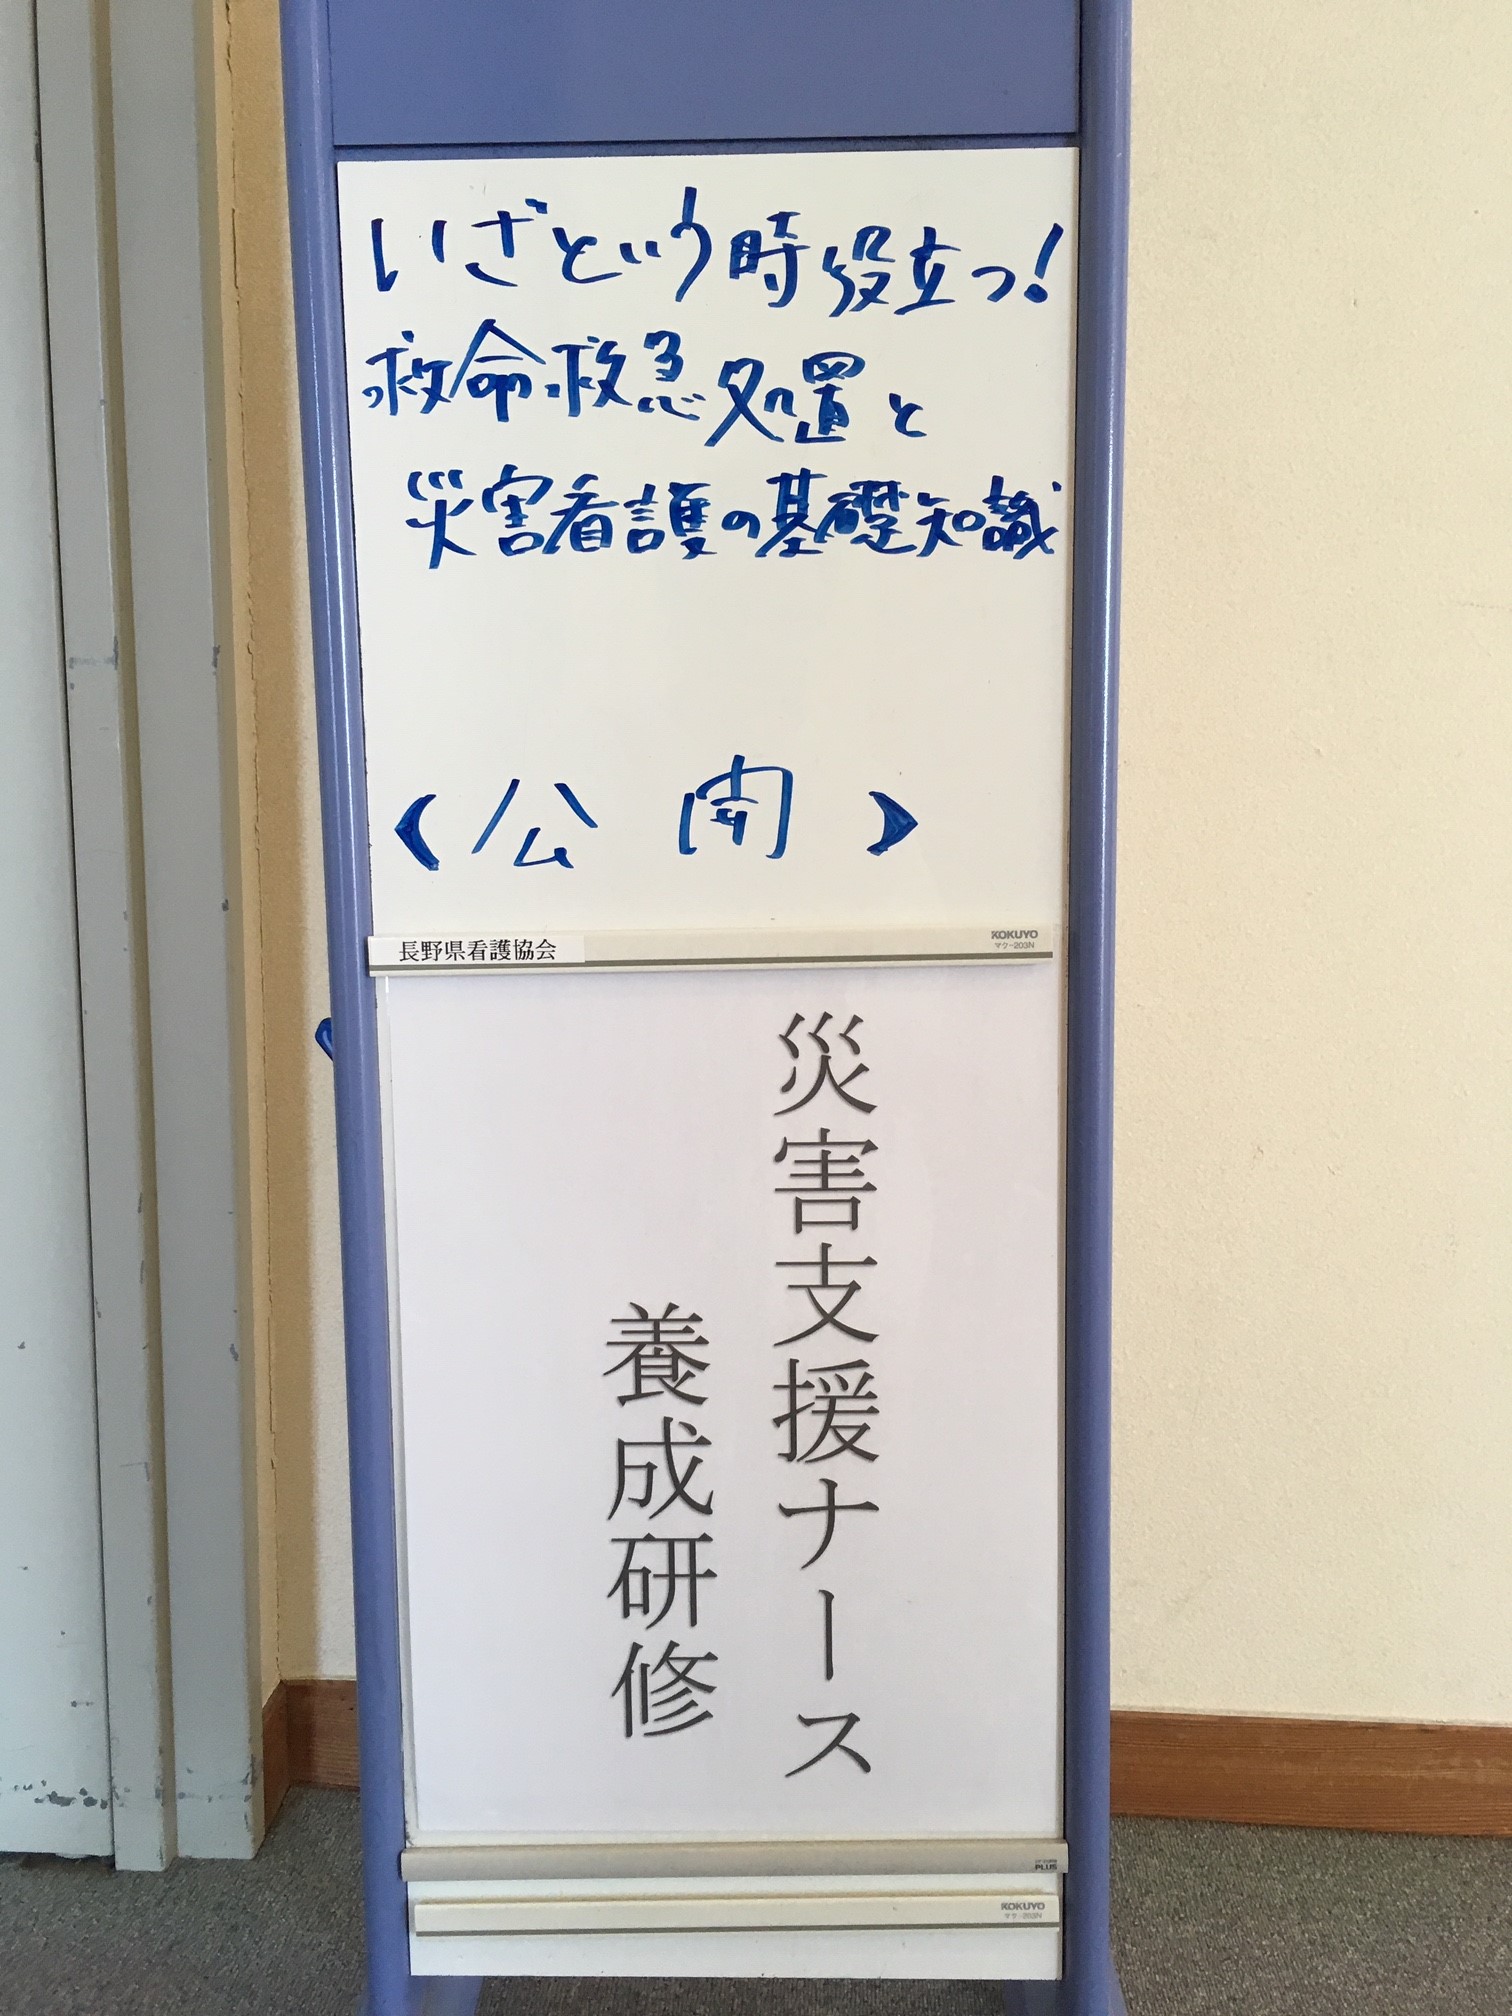 いざという時役立つ!
救命救急処置と
災害看護の基礎知識
〈公開〉
長野県看護協会
KOKUYO
マク-203N
災害支援ナース
養成研修
PLUS
KOKUYO
マク-203N